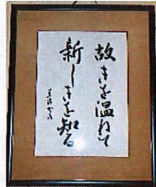 故きを温ねて
新しきを知る